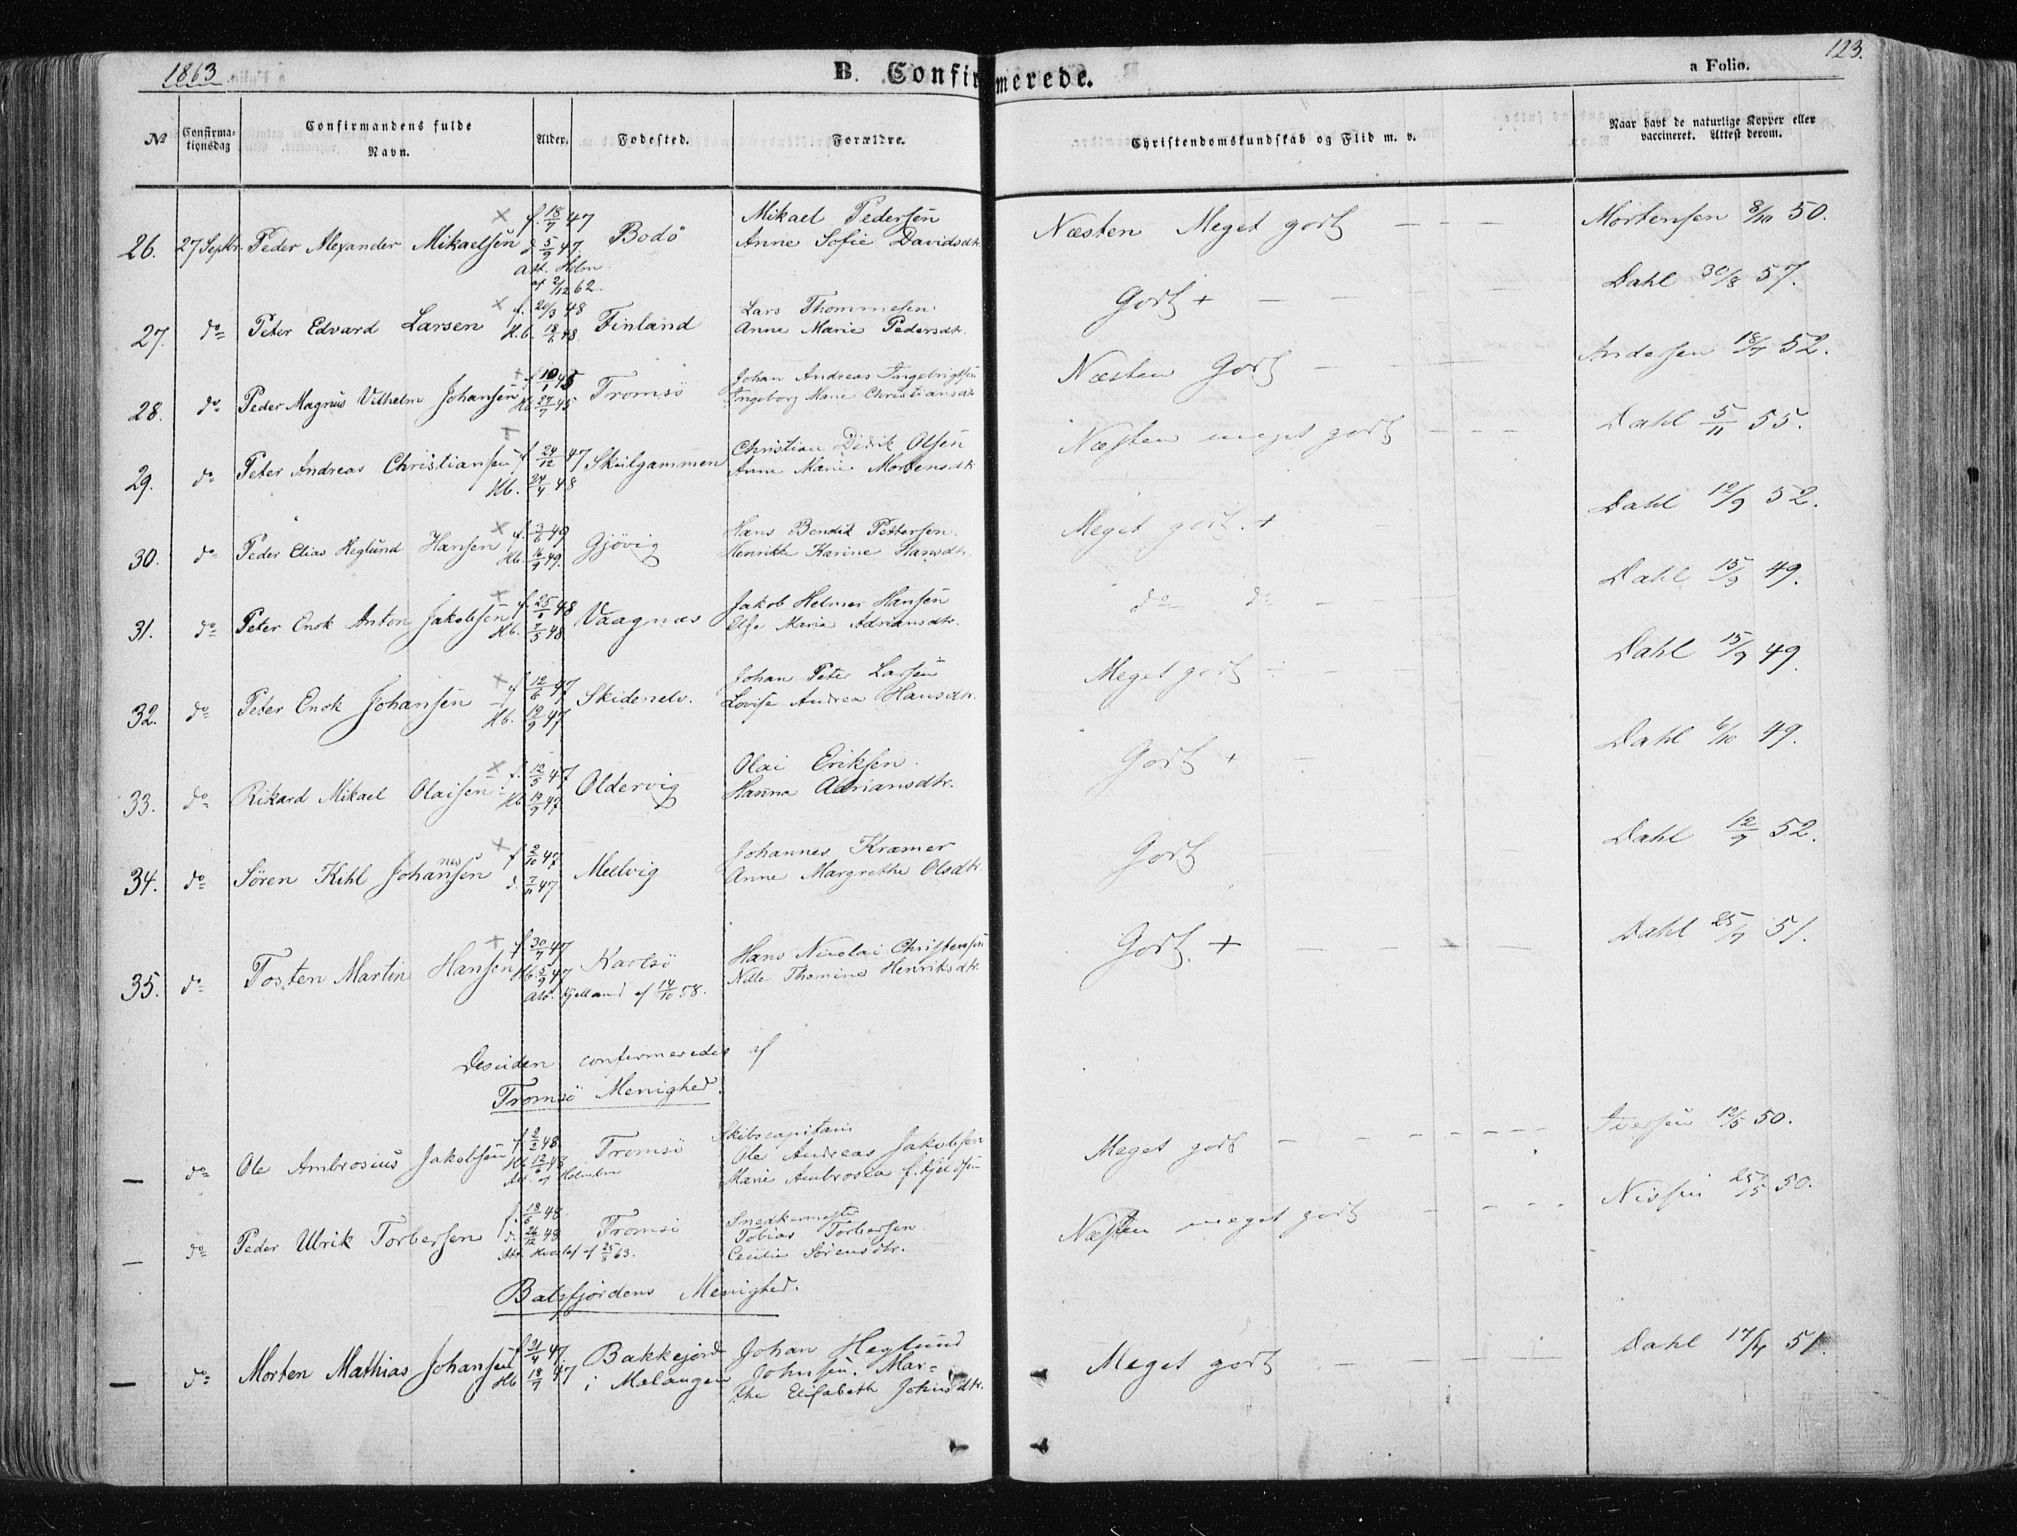 1863
B. Confirmerede.
a Folio.
123.
№
Confirma-
tionsdag
Confirmandens fulde
Navn.
Alder.
Fødested.
Forældre.
Christendomskundskab og Flid m. v.
Naar havt de naturlige Kopper eller
vaccineret. Attest derom.
f. 18/7 47 Mikael Pedersen
26. 27 Septbr. Peder Alexander Mikaelsen × d. 5/9 47 Bodö Anne Sofie Davidsdtr. Næsten Meget godt — — — Mortensen 8/10 50.
att. Holm
af 2/12 62.
× f. 20/3 48 Lars Thommesen
27. do Peter Edvard Larsen H.b. 18/6 48. Finland Anne Marie Pedersdtr. Godt + — — — — Dahl 30/8 57.
× f. 10/1 45 Johan Andreas Ingebrigtsen
28. do Peder Magnus Vilhelm Johansen Hb. 27/7 45 Tromsö Ingeborg Marie Christiansdtr Næsten Godt — — — Andersen 18/7 52.
29. do Peter Andreas Christiansen f. 24/12 47 Skulgammen Christian Didrik Olsen
Hb. 24/4 48 Anne Marie Mortensdtr Næsten meget godt — — — Dahl 5/11 55.
× f. 3/6 49 Hans Bendik Pettersen.
30. do Peder Elias Heglund Hansen Hb. 16/9 49. Gjövig Henrikke Karine Hansdtr. Meget godt. + — — Dahl 12/9 52.
× f. 25/1 48 Jakob Helmer Hansen
31. do Peter Enok Anton Jakobsen Hb. 7/5 48. Vaagnæs Else Maria Adriansdtr. do do — — Dahl 15/9 49.
× f. 12/6 47 Johan Peter Larsen
32. do Peter Enok Johansen Hb. 19/9 47 Skidenelv. Lovise Andrea Hansdtr. Meget godt — — — Dahl 15/9 49.
× f. 12/5 47 Olai Eriksen.
33. do Rikard Mikael Olaisen Hb. 19/9 47. Oldervig Hanna Adriansdtr. Godt + — — Dahl 6/10 49.
× f. 2/10 47. Johannes Kræmer
34. do Sören Kihl Johannessen d. 7/11 47 Melvig Anne Margrethe Olsdtr. Godt — — — Dahl 12/9 52.
× f. 30/7 47 Hans Nicolai Christensen
35. do Tosten Martin Hansen Hb. 5/9 47 Karlsö Nille Thomine Henriksdtr. Godt. + — — — Dahl 25/7 51.
Att. Kjelland af 14/10 58.
Desuden confirmeredes af
Tromsö Menighed.
f. 2/3 48. Skibscapitain
— do Ole Ambrosius Jakobsen Hb. 12/6 48 Tromsö Ole Andreas Jakobsen Meget godt — — — Iversen 12/5 50.
Att. af Holmboe Marie Ambrosia f. Kjeldsen
f. 18/6 48 Snedkermester
— do Peder Ulrik Torbersen d. 26/12 48 Tromsö Tobias Torbersen. Næsten meget godt — — — Nissen 25/5 50.
Att. Hvoslef af 25/8 63. Cecilie Sörensdtr.
Balsfjordens Menighed.
f. 21/4 47 Bakkejord Johan Heglund
— do Morten Mathias Johansen Hb. 18/7 47 i Malangen Johnsen. Mar-
the Elisabeth Johnsdtr. Meget godt — — — Dahl 17/7 51.